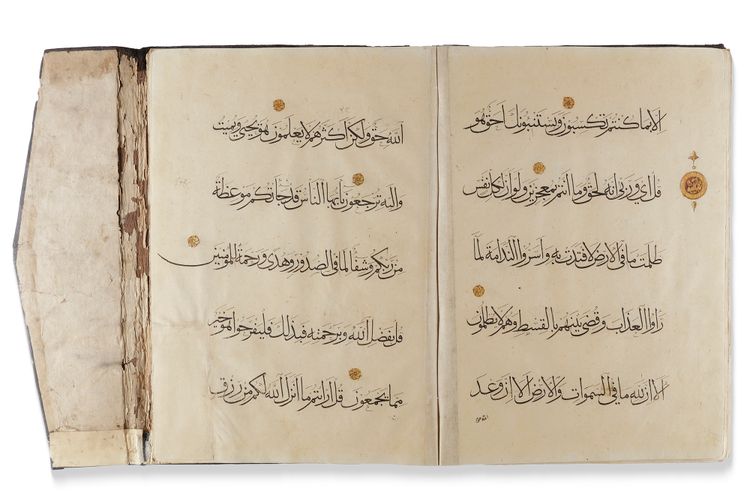 الا بما كنتم تكسبون ويستنبونك احق هو
قل اي وربي انه لحق وما انتم بمعجزين ولو ان لكل نفس
ظلمت ما في الارض لافتدت به واسروا الندامة لما
راوا العذاب وقضي بينهم بالقسط وهم لا يظلمون
الا ان لله ما في السموات والارض الا ان وعد
الله حق
الله حق ولكن اكثرهم لا يعلمون هو يحيي ويميت
واليه ترجعون يايها الناس قد جاتكم موعظة
من ربكم وشفا لما في الصدور وهدى ورحمة للمومنين
قل بفضل الله وبرحمته فبذلك فليفرحوا هو خير
مما يجمعون قل ارايتم ما انزل الله لكم من رزق